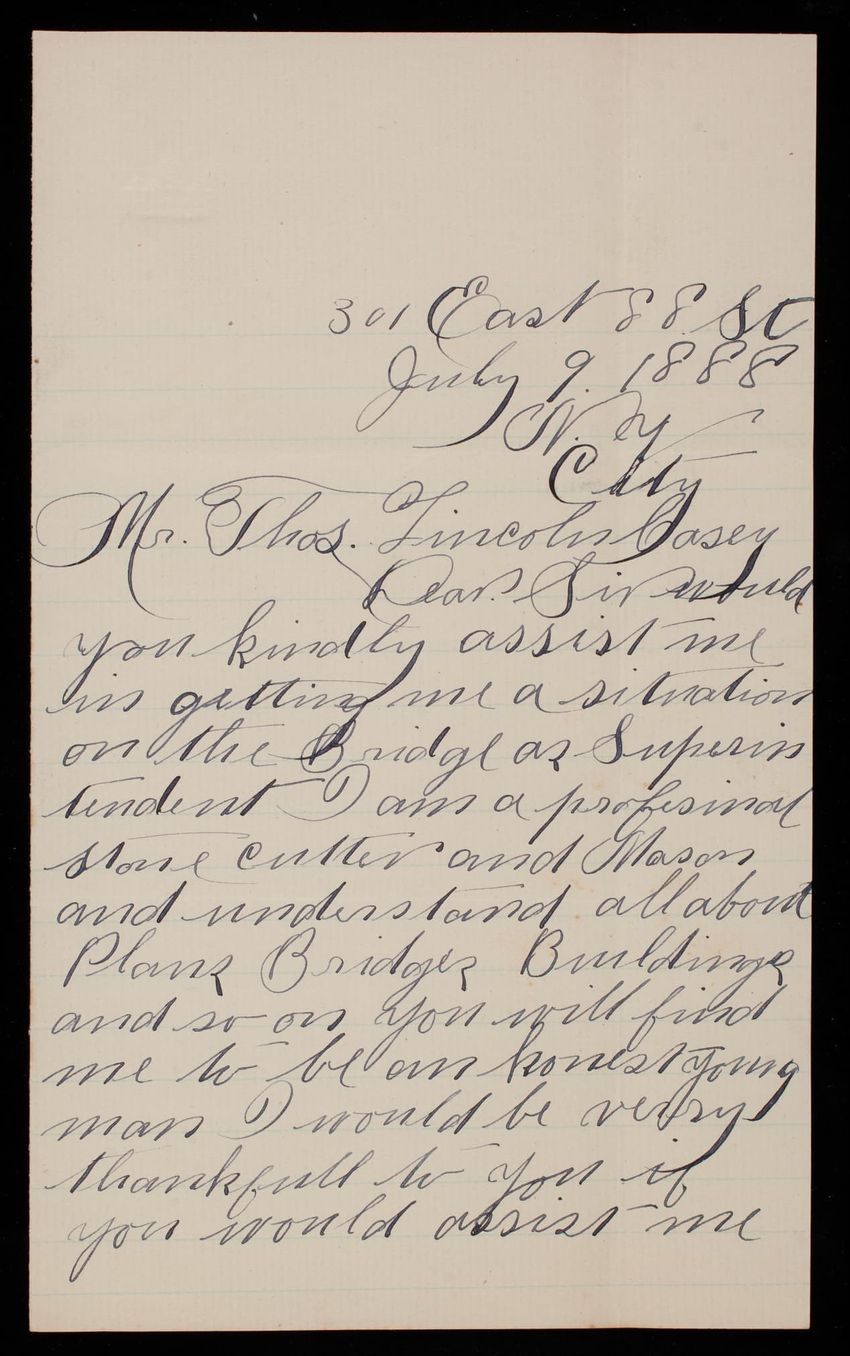 301 East 88 St
July 9. 1888
N. Y
City
Mr. Thos. Lincoln Casey
Dear. Sir would
you kindly assist me
in getting me a situation
on the Bridge as Superin
tendent I am a profesinal
stone cutter and Mason
and understand all about
Plans Bridges Buildings
and so on you will find
me to be an honest young
man I would be verry
thankfull to you if
you would assist me